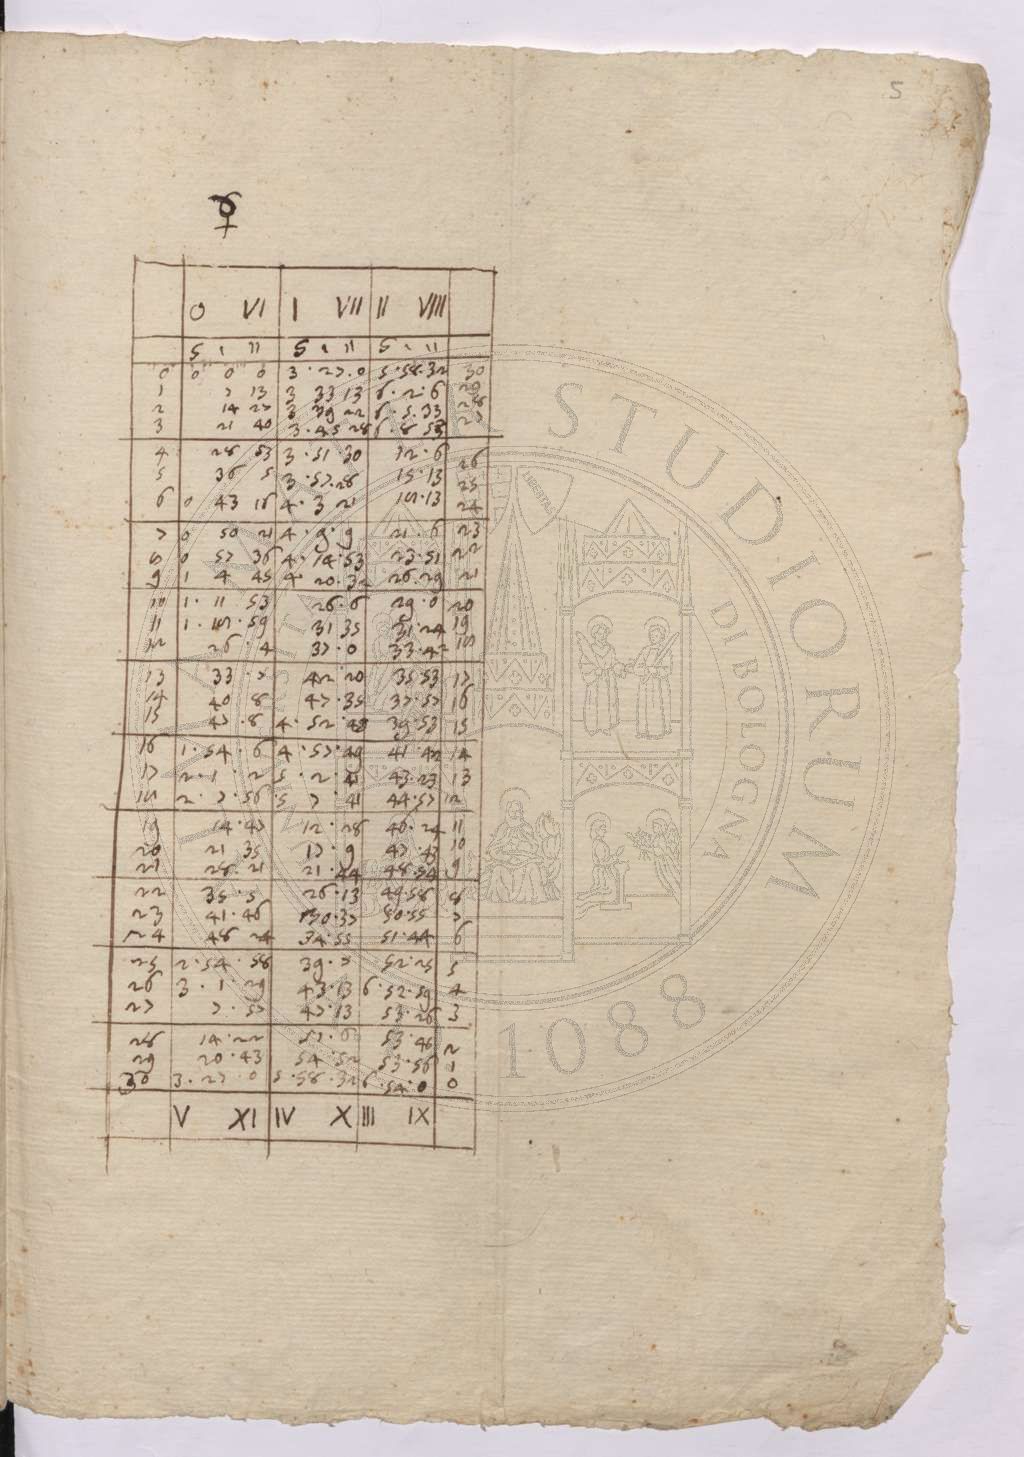 5
♀
0 VI I VII II VIII
S ' " S ' " S ' "
0 0 0 0 3 · 27 · 0 5 · 58 · 32 30
1 7 13 3 33 13 6 · 2 · 6 29
2 14 27 3 39 22 6 · 5 · 33 28
3 21 40 3 · 45 28 6 8 53 27
4 28 53 3 · 51 · 30 12 · 6 26
5 36 5 3 · 57 · 28 15 · 13 25
6 0 43 16 4 · 3 21 18 · 13 24
7 0 50 21 4 · 9 · 9 21 · 6 23
8 0 57 36 4 · 14 · 53 23 · 51 22
9 1 4 45 4 20 · 32 26 · 29 21
10 1 · 11 53 26 · 6 29 · 0 20
11 1 · 18 · 59 31 35 31 · 24 19
12 26 · 4 37 · 0 33 · 42 18
13 33 · 7 42 20 35 53 17
14 40 8 47 · 35 37 · 57 16
15 47 · 8 4 · 52 · 39 · 53 15
16 1 · 54 · 6 4 · 57 · 49 41 · 42 14
17 2 · 1 · 2 5 · 2 · 43 · 23 13
18 2 · 7 · 56 5 7 · 41 44 · 57 12
19 14 · 47 12 · 28 46 · 24 11
20 21 35 17 · 9 47 · 43 10
21 28 · 21 21 · 44 48 · 54 9
22 35 · 5 26 · 13 49 · 58 8
23 41 · 46 30 · 37 50 · 55 7
24 48 24 34 · 55 51 · 44 6
25 2 · 54 · 58 39 · 7 52 · 25 5
26 3 · 1 · 29 43 · 13 6 · 52 · 59 4
27 7 · 57 47 · 13 53 · 26 3
28 14 · 22 51 · 6 53 · 46 2
29 20 · 43 54 · 52 53 · 56 1
30 3 · 27 · 0 5 · 58 · 32 6 · 54 · 0 0
V XI IV X III IX
ALMA MATER STUDIORUM
UNIVERSITÀ DI BOLOGNA
LIBERTAS
1088